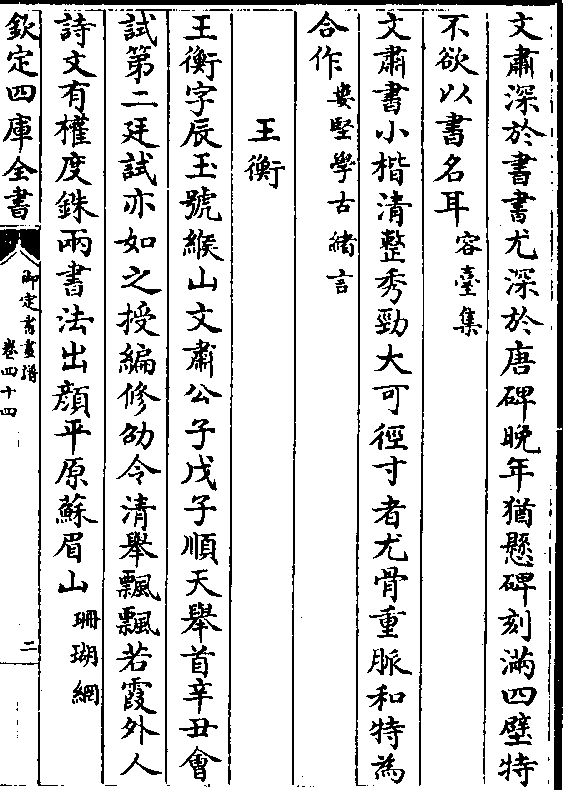 文肅深於書書尤深於唐碑晚年猶懸碑刻滿四壁特
不欲以書名耳容臺集
文肅書小楷清整秀勁大可徑寸者尤骨重脈和特為
合作婁堅學古緒言
王衡
王衡字辰玉號緱山文肅公子戊子順天舉首辛丑會
試第二廷試亦如之授編修劭令清舉飄飄若霞外人
詩文有權度銖兩書法出顏平原蘇眉山珊瑚網
欽定四庫全書
御定書畫譜
卷四十四
二